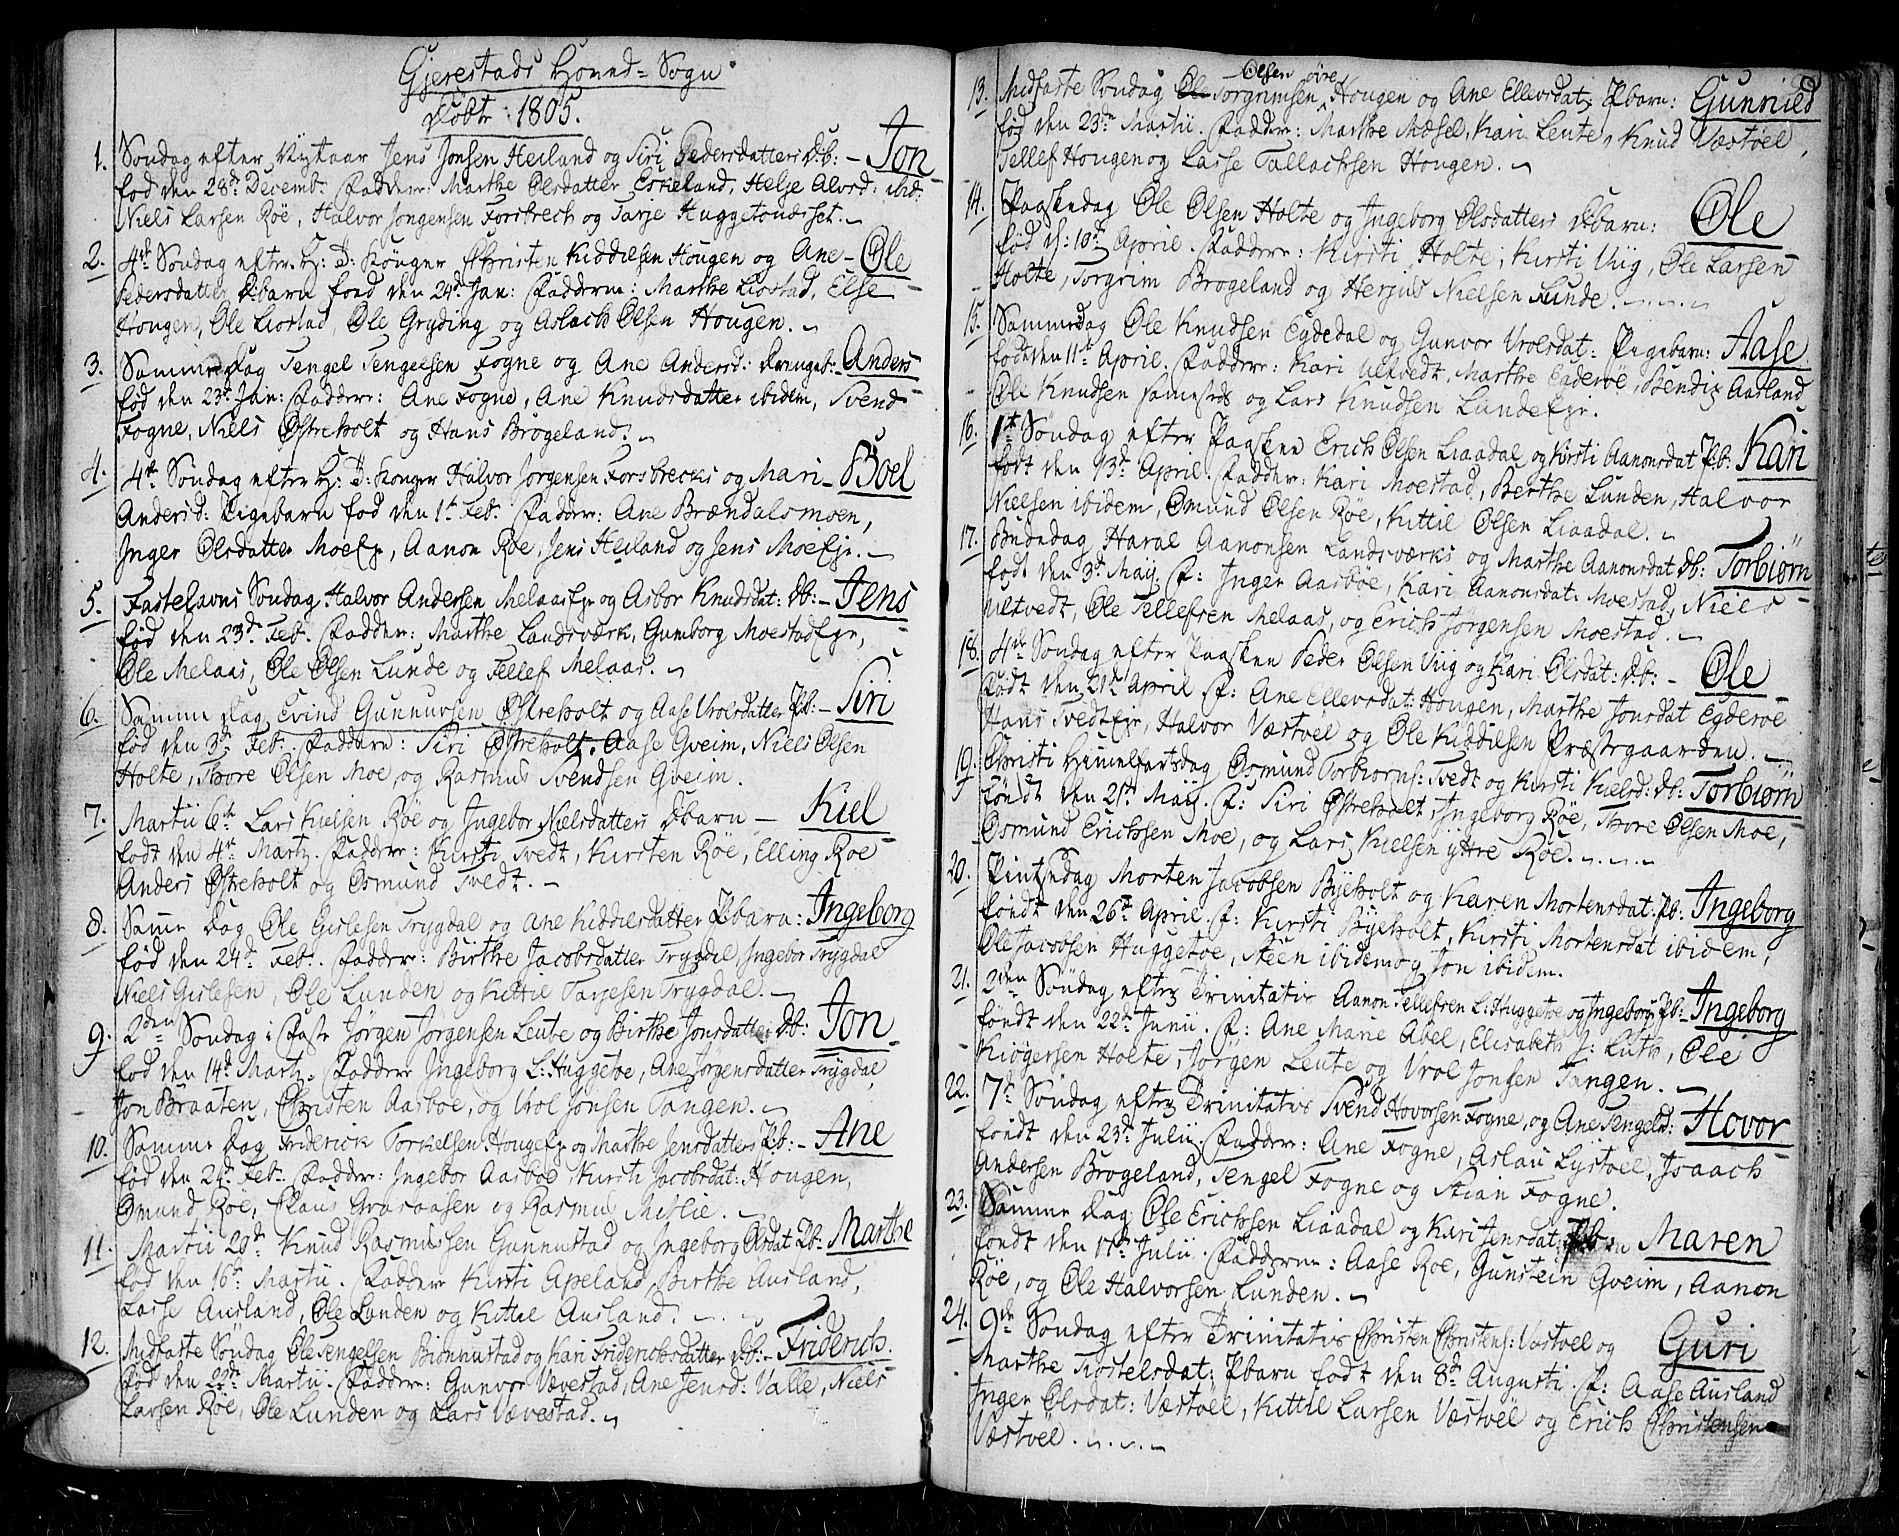 Gjerestads Hoved-Sogn
Døbte 1805.
1. Søndag efter Nytaar Jens Jonsen Heiland og Siri Pedersdatters Db: - Jon
fød den 28de Decemb. Faddere: Marthe Olsdatter Eskeland, Helje Alvsd: ibid:
Niels Larsen Røe, Halvor Jorgensen Forsbech og Tarje Huggetondsset.
2. 4de Søndag efter H: 3: Konger Christen Kiddelsen Hougen og Ane - Ole
Pedersdatter Dbarn fond den 24d Jan: Fadderne: Marthe Liostad, Else
Hougen, Ole Liostad, Ole Gryding og Aslach Olsen Hougen.
3. Samme Dag Tengel Tengelsen Fogne og Ane Andersd: Drengeb: Anders
fød den 23d Jan: Faddere: Ane Fogne, Ane Knudsdatter ibidem, Svend
Fogne, Niels Østreholt og Hans Brøgeland.
4. 4de Søndag efter H: 3: Konger Halvor Jørgensen Forsbrecks og Mari - Boel
Andersd: Pigebarn fød den 1t Feb. Faddere: Ane Brændalsmoen,
Inger Olsdatter Moeejr, Aanon Røe, Jens Heiland og Jens Moeejr.
5. Fastelavns Søndag Halvor Andersen Melaasejr og Asbor Knudsdat: Db: - Jens
fød den 23d Feb. Faddere: Marthe Landsværk, Gumborg Moestadejr,
Ole Melaas, Ole Olsen Lunde og Tellef Melaas.
6. Samme Dag Evind Gunnursen Østreholt og Aase Vrolsdatter Pb: - Siri
fød den 3d Feb. Faddere: Siri Østreholt, Aase Gveim, Niels Olsen
Holte, Thore Olsen Moe og Rasmus Svendsen Gveim.
7. Martii 6te Lars Kielsen Røe og Ingebor Nielsdatters Dbarn - Kiel
født den 4de Martz. Faddere: Kirsti Tvedt, Kirsten Røe, Elling Røe
Anders Østreholt og Osmund Tvedt.
8. Same Dag Ole Gislesen Trygdal og Ane Kiddelsdatter Pbarn: Ingeborg
fød den 24d Feb. Faddere: Birthe Jacobsdatter Trygdal, Ingebor Trygdal
Niels Gislesen, Ole Lunden og Kittil Tarjesen Trygdal.
9. 2den Søndag i Faste Jørgen Jørgensen Leute og Birthe Jonsdatter Db: Jon
fød den 14d Martz. Faddere Ingeborg L: Huggetoe, Ane Jørgensdatter Trygdal,
Jon Braaten, Christen Aasboe, og Vrol Jonsen Tangen.
10. Samme Dag Friderick Torkelsen Hougejr og Marthe Jensdatters Pb: - Ane
fød den 24d Feb. Faddere: Ingebor Aasboe, Kirsti Jacobsdat: Hougen,
Osmund Røe, Claus Graraasen og Rasmus Mitlie.
11. Martii 20d Knud Rasmussen Gunnustad og Ingeborg Olsdat Pb: Marthe
fød den 16d Martii. Faddere Kirsti Apeland, Birthe Ausland,
Lasse Ausland, Ole Lunden og Kittil Ausland.
12. Midfaste Søndag Ole Tengelsen Bionnustad og Kari Friderichsdatter Db: - Friderich.
Fød den 22de Martii. Faddere: Gunvor Vævestad, Ane Jensd: Valle, Niels
Larsen Røe, Ole Lunden og Lars Vævestad.
13. Midfaste Søndag Ole Torgrimsen Olsen øvre Hougen og Ane Ellevsdat, Pbarn: Gunnild
fød den 23de Martii. Faddere: Marthe Mæsel, Kari Leute, Knud Væstøel,
Tellef Hougen og Lasse Tallachsen Hougen.
14. Paaskedag Ole Olsen Holte og Ingeborg Olsdatters Dbarn: Ole
fød d: 10d April. Faddere: Kirsti Holte, Kirsti Viig, Ole Larsen
Holte, Torgrim Brøgeland og Herjus Nielsen Lunde.
15. Sammedag Ole Knudsen Egdedal og Gunvor Vrolsdat: Pigebarn: Aase
født den 11te April. Faddere: Kari Ultvedt, Marthe Egderøe, Bendix Aasland
Ole Knudsen samesteds og Lars Knudsen Lundeejr.
16. 1te Søndag efter Paasken Erich Olsen Liaadal og Kirsti Aanonsdat Pb: Kari
født den 13d April. Faddere: Kari Moestad, Berthe Lunden, Halvor
Nielsen ibidem, Osmund Olsen Røe, Kittil Olsen Liaadal.
17. Budedag Haral Aanonsen Landsværks og Marthe Aanonsdat Db: Torbiørn
født den 3d Maij. F: Inger Aasbøe, Kari Aanonsdat: Moestad, Niels
Ultvedt, Ole Tellefsen Melaas, og Erich Jørgensen Moestad.
18. 4de Søndag efter Paasken Peder Olsen Viig og Kari Olsdat: Db: - Ole
Født den 21d April F: Ane Ellevsdat: Hougen, Marthe Jonsdat Egderøe
Hans Tvedtejr, Halvor Væstøel og Ole Kiddelsen Præstegaarden.
19. Christi Himmelfartsdag Osmund Torbiorns: Tvedt og Kirsti Kielsd: Db: Torbiørn
føndt den 21d Maij. F: Siri Østreholt, Ingeborg Røe, Thore Olsen Moe,
Osmund Erichsen Moe, og Lars Kielsen ÿttre Røe.
20. Pintsedag Morten Jacobsen Bÿeholt og Karen Mortensdat. Pb: Ingeborg
føndt den 26de April. F: Kirsti Bÿeholt, Kirsti Mortensdat ibidem,
Ole Jacobsen Huggetoe, Steen ibidem og Jon ibidem.
21. 2den Søndag efter Trinitatis Aanon Tellefsen L: Huggetoe og Ingeborg Pb: - Ingeborg
føndt den 22d Junii. F: Ane Marie Abel, Elisabeth J: Luth, Ole
Kiøgersen Holte, Jørgen Leute og Vrol Jonsen Tangen.
22. 7de Søndag efter Trinitatis Svend Hovorsen Fogne, og Ane Tengelsd: Hovor
føndt den 23d Julii. Faddere: Ane Fogne, Aslau Lÿstøel, Isaach
Andersen Brøgeland, Tengel Fogne og Stian Fogne.
23. Samme Dag Ole Erichsen Liaadal og Kari Jensdat: Pb: Maren
føndt den 17d Julii. Fadderne: Aase Røe, Gunstein Gveim, Aanon
Røe, og Ole Halvorsen Lunden.
24. 9de Søndag efter Trinitatis Christen Christens: Væstøel og Guri
Marthe Tiostelsdat: Pbarn født den 8de Augusti. F: Aase Ausland
Inger Olsdat: Væstøel, Kittil Larsen Væstøel og Erich Christensen
Væstøel.